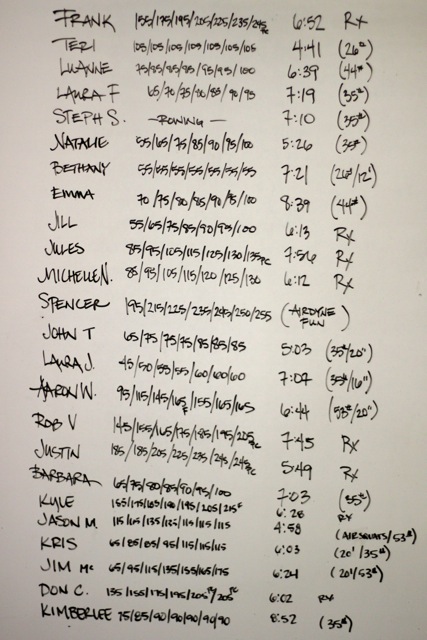 FRANK 155/175/195/205/225/235/245PC 6:52 Rx
TERI 105/105/105/105/105/105/105 4:41 (26#)
LUANNE 75/85/85/85/95/95/100 6:39 (44#)
LAURA F 65/70/75/80/85/90/95 7:19 (35#)
STEPH S. -ROWING- 7:10 (35#)
NATALIE 55/65/75/85/90/95/100 5:26 (35#)
BETHANY 55/55/55/55/55/55/55 7:21 (26#/12')
EMMA 70/75/80/85/90/95/100 8:39 (44#)
JILL 55/65/75/85/90/95/100 6:13 Rx
JULES 85/95/105/115/125/130/135PC 7:56 Rx
MICHELLE N. 85/95/105/115/120/125/130 6:12 Rx
SPENCER 195/215/225/235/245/250/255 (AIRDYNE FUN)
JOHN T 65/75/75/75/85/85/85 5:03 (35#/20")
LAURA J. 45/50/55/55/60/60/60 7:07 (35#/16")
AARON W. 95/115/145/165F/155/165/165 6:44 (53#/20")
ROB V 145/155/165/175/185/195/205PC 7:45 Rx
JUSTIN 185/185/205/225/235/245/245PC 5:49 Rx
BARBARA 65/75/80/85/90/95/100 7:03 (35#)
KYLE 155/175/185/190/195/205/215F 6:28 Rx
JASON M. 115/165/135/125/115/115/115 4:58 (AIRSQUATS/53#)
KRIS 65/85/85/95/115/115/115 6:03 (20'/35#)
JIM Mc 65/95/115/135/155/165/175 6:24 (20'/53#)
DON C. 135/155/175/195/205/205PC 6:02 Rx
KIMBERLEE 75/85/90/90/90/90/90 8:52 (35#)